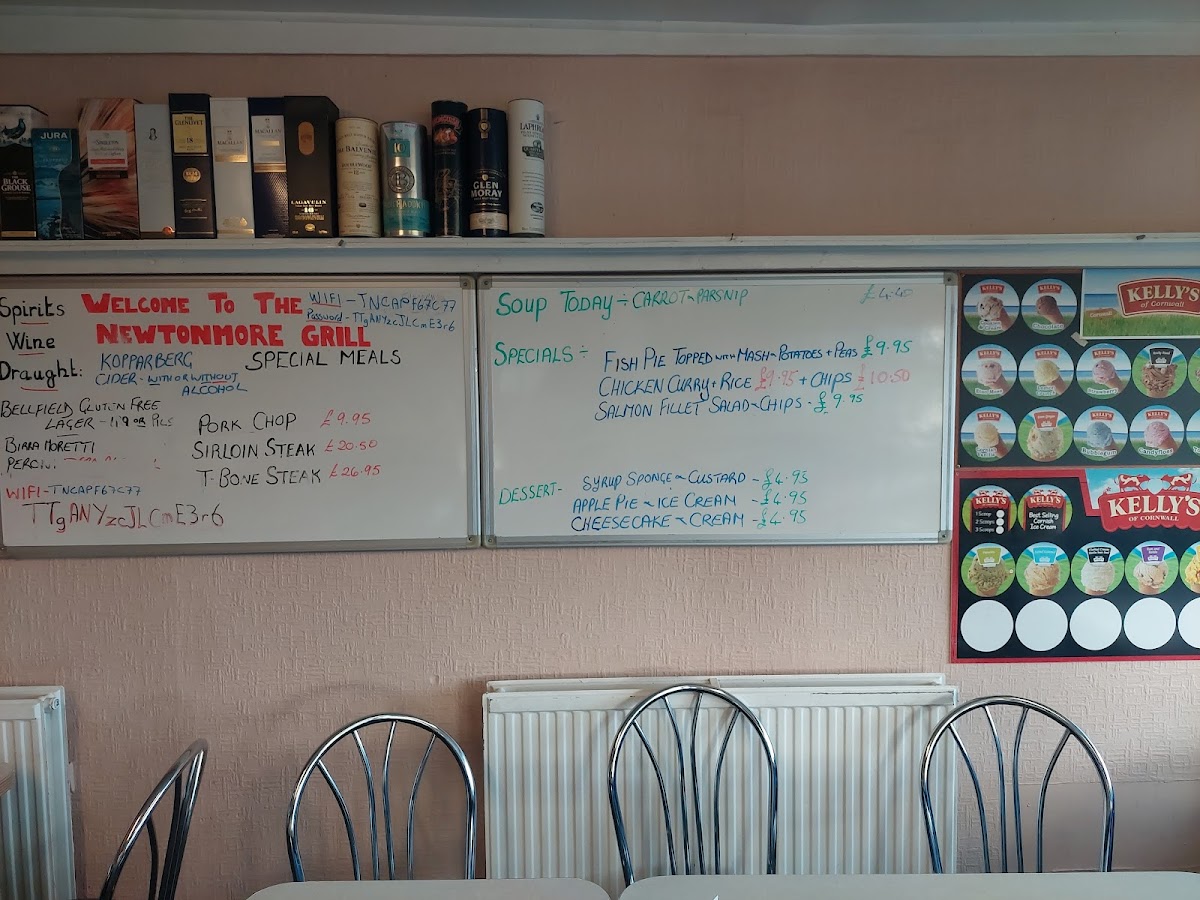 BLACK GROUSE
JURA
THE GLENLIVET
18
MACALLAN
MACALLAN
LAGAVULIN
THE BALVENIE
10
GLEN MORAY
LAPHROAIG
Spirits
Wine
Draught:
WELCOME TO THE
NEWTONMORE GRILL
WIFI - TNCAPF67C77
Password - TTgANYzcJLCmE3r6
KOPPARBERG
CIDER - WITH OR WITHOUT
ALCOHOL
SPECIAL MEALS
BELLFIELD GLUTEN FREE
LAGER - 1.9 OR PILS
BIRRA MORETTI
PORK CHOP £9.95
SIRLOIN STEAK £20.50
T-BONE STEAK £26.95
WIFI - TNCAPF67C77
TTgANYzcJLCmE3r6
SOUP TODAY ÷ CARROT & PARSNIP £4.40
SPECIALS ÷
FISH PIE TOPPED WITH MASH - POTATOES + PEAS £9.95
CHICKEN CURRY + RICE £9.95 + CHIPS £10.50
SALMON FILLET SALAD & CHIPS - £9.95
DESSERT -
SYRUP SPONGE & CUSTARD - £4.95
APPLE PIE & ICE CREAM - £4.95
CHEESECAKE & CREAM - £4.95
KELLY'S
of Cornwall
Chocolate
Strawberry
Bubblegum
Candyfloss
KELLY'S
OF CORNWALL
KELLY'S
KELLY'S
1 Scoop
2 Scoops
3 Scoops
Best Selling
Cornish
Ice Cream